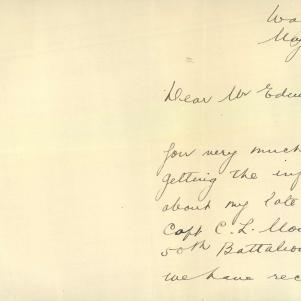 Wa
May
Dear Mr Edw
for very much
getting the inf
about my late
Capt C. L. Moo
50th Battalion
we have rec